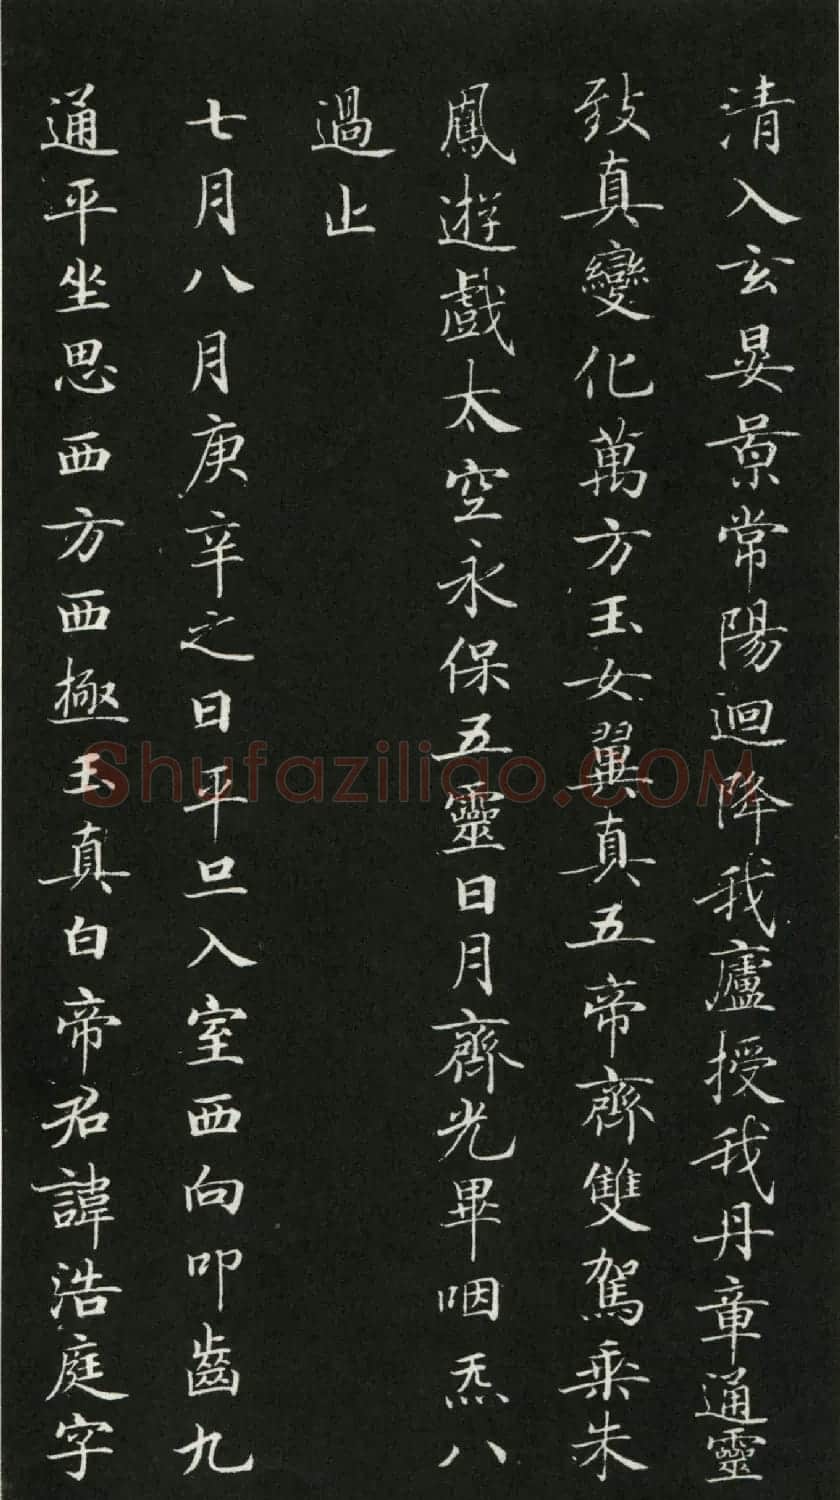 清入玄晏景常陽迴降我廬授我丹章通靈
致真變化萬方玉女翼真五帝齊雙駕乘朱
鳳遊戲太空永保五靈日月齊光畢咽炁八
過止
七月八月庚辛之日平旦入室西向叩齒九
通平坐思西方西極玉真白帝君諱浩庭字
Shufaziliao.COM